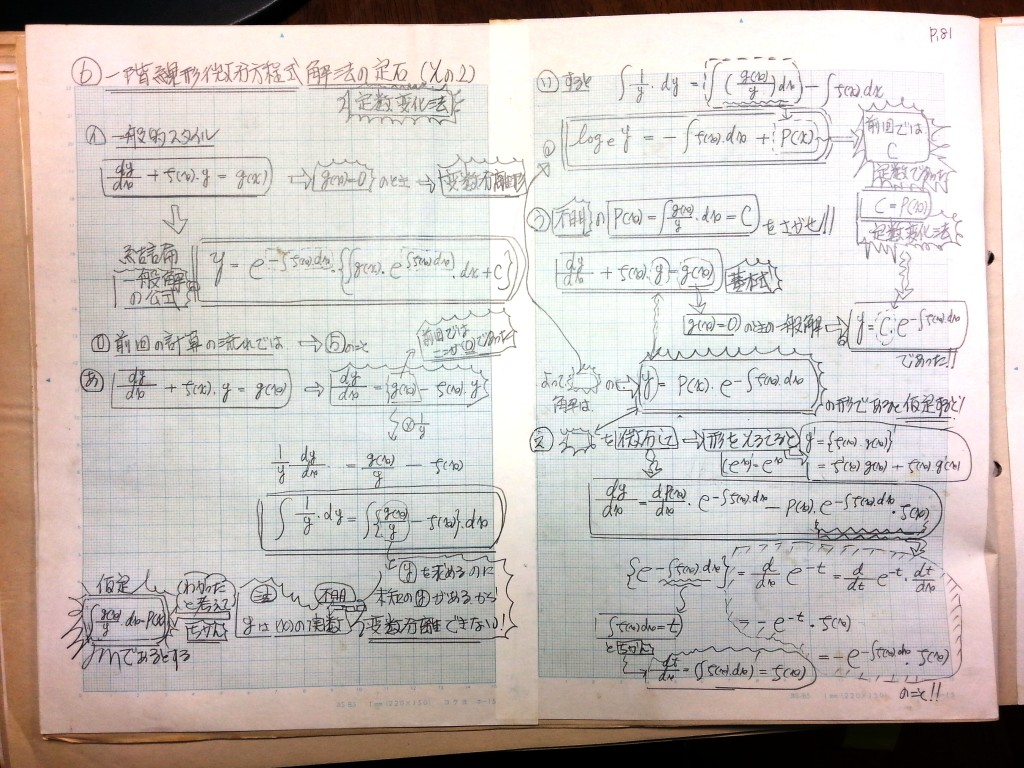 P.81
⑥ 一階線形微分方程式 解法の定石 (その2)
定数変化法
㋑ 一般的スタイル
dy/dx + f(x)・y = g(x) → g(x)=0 のとき → 変数分離形
結局
一般解の公式
y = e^{-∫f(x)dx}・{∫g(x)・e^{∫f(x)dx}・dx + C}
㋺ 前回の計算の流れでは → ⑤のとき
前回では
ここが0であった
㋐ dy/dx + f(x)・y = g(x) → dy/dx = g(x) - f(x)・y
⊗ 1/y
1/y dy/dx = g(x)/y - f(x)
∫ 1/y・dy = ∫{g(x)/y - f(x)}・dx
yを求めるのに
未知のyがあるから
変数分離できない!
yは(x)の関数
不明
わかったと考えて
仮定
∫g(x)/y dx = P(x)
であるとする
すると ∫ 1/y・dy = ∫(g(x)/y)dx - ∫f(x)dx
log e y = -∫f(x)・dx + P(x)
前回では
C
定数であった
C = P(x)
定数変化法
㋒ 不明 の P(x) = ∫g(x)/y・dx = C をさがせ!!
dy/dx + f(x)・y = g(x) 基本式
g(x)=0 のときの一般解 → y = C・e^{-∫f(x)dx}
であった!!
よって
解は
y = P(x)・e^{-∫f(x)dx}
の形であると仮定すると!
㋓ を微分して → 形をととのえると y' = {f(x)・g(x)}'
(e^x)' = e^x = f'(x)g(x) + f(x)g'(x)
dy/dx = dP(x)/dx・e^{-∫f(x)dx} - P(x)・e^{-∫f(x)dx}・f(x)
{e^{-∫f(x)dx}}' = d/dx e^{-t} = d/dt e^{-t}・dt/dx
∫f(x)dx = t
= -e^{-t}・f(x)
とおくと
dt/dx = (∫f(x)・dx)' = f(x)
= -e^{-∫f(x)dx}・f(x)
のこと!!